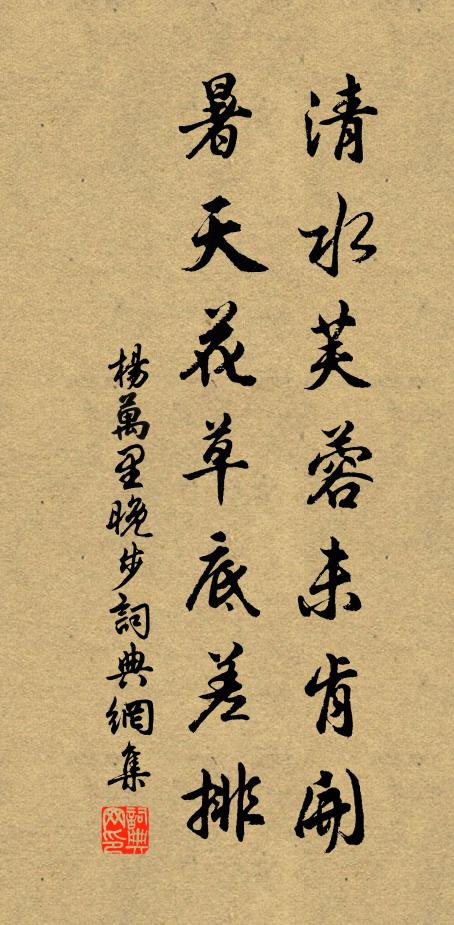 清水芙蓉未肯開
暑天花草底差排
楊萬里晚步詞典網集
詞典
网印